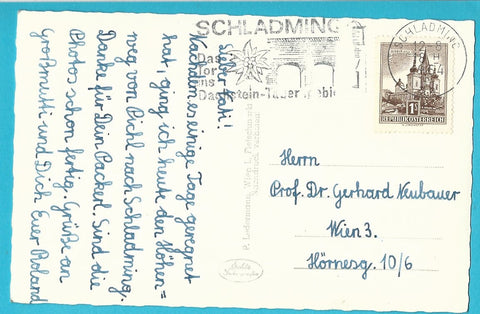 SCHLADMING
Das
Tor
ins
Dachstein-Tauerngebiet
SCHLADMING
12.8
REPUBLIK ÖSTERREICH
1S
Lieber Vati!
Nachdem es einige Tage geregnet
hat, ging ich heute den Höhen=
weg von Pichl nach Schladming.
Danke für Dein Packerl. Sind die
Photos schon fertig. Grüße an
Großmutti und Dich Euer Roland
P. Ledermann, Wien I, Fleischmarkt
Nachdruck verboten
Herrn
Prof. Dr. Gerhard Neubauer
Wien 3.
Hörnesg. 10/6